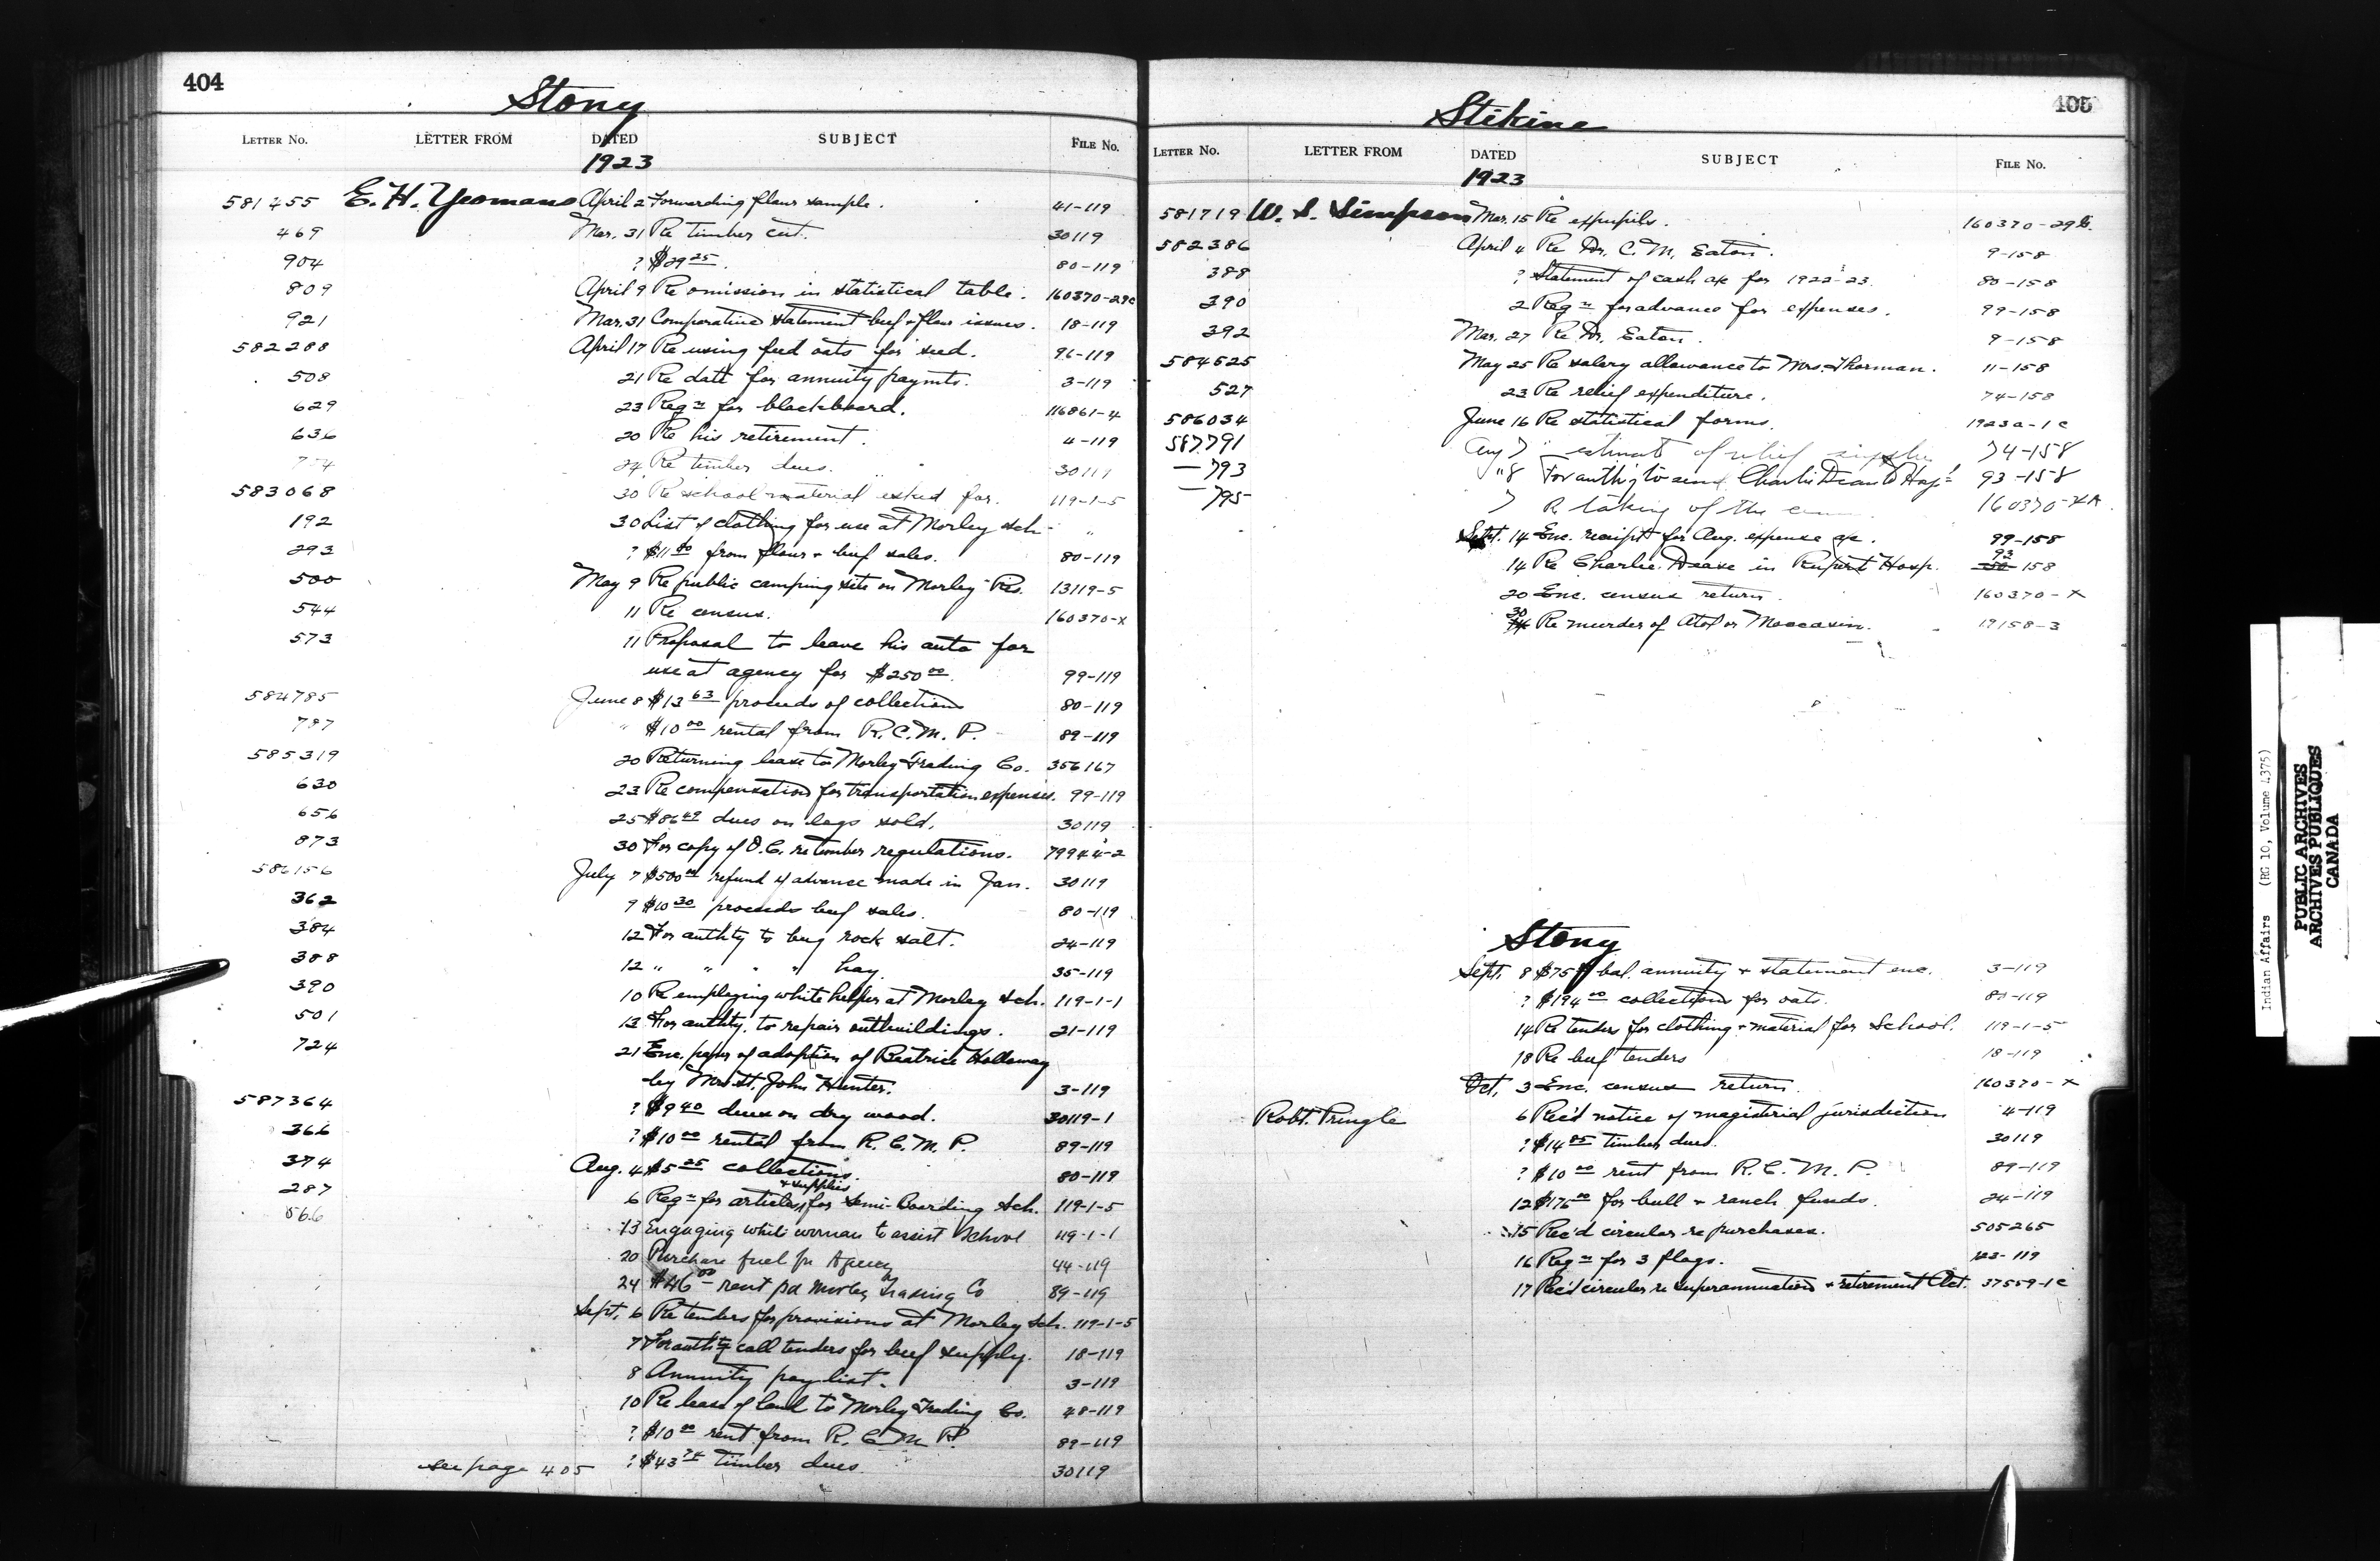 404
Stony
LETTER No. LETTER FROM DATED SUBJECT FILE No.
1923
581455 E. H. Yeomans April 2 Forwarding flour sample. 41-119
469 Mar. 31 Re timber cut. 30119
904 ? $29 25. 80-119
809 April 9 Re omission in statistical table. 160370-29c
921 Mar. 31 Comparative statement beef & flour issues. 18-119
582288 April 17 Re using feed oats for seed. 96-119
508 21 Re date for annuity paymts. 3-119
629 23 Reqn for blackboard. 116861-4
636 20 Re his retirement. 4-119
24 Re timber dues. 30119
583068 30 Re school material asked for. 119-1-5
192 30 List of clothing for use at Morley Sch. "
293 ? $11 80 from flour & beef sales. 80-119
500 May 9 Re public camping site on Morley Res. 13119-5
544 11 Re census. 160370-x
573 11 Proposal to leave his auto for
use at agency for $250 00. 99-119
584785 June 8 $13 63 proceeds of collections 80-119
787 " $10 00 rental from R.C.M.P. 89-119
585319 20 Returning lease to Morley Trading Co. 356167
630 23 Re compensation for transportation expenses. 99-119
656 25 $86 49 dues on logs sold. 30119
873 30 For copy of O.C. re timber regulations. 79944-2
586156 July 7 $500 00 refund of advance made in Jan. 30119
362 9 $10 30 proceeds beef sales. 80-119
384 12 For authty to buy rock salt. 24-119
388 12 " " " " hay. 35-119
390 10 Re employing white helper at Morley Sch. 119-1-1
501 13 For authty. to repair outbuildings. 21-119
724 21 Enc. paper of adoption of Beatrice Holloway
by Mr. & Mrs. John Hunter. 3-119
587364 ? $9 40 dues on dry wood. 30119-1
366 ? $10 00 rental from R.C.M.P. 89-119
374 Aug. 4 $5 25 collections. 80-119
& supplies
287 6 Reqn for articles for Semi-Boarding Sch. 119-1-5
566 13 Engaging white woman to assist School 119-1-1
20 Purchase fuel for Agency 44-119
24 $46 00 rent pd Morley Trading Co 89-119
Sept. 6 Re tenders for provisions at Morley Sch. 119-1-5
7 For authty call tenders for beef supply. 18-119
8 Annuity pay list. 3-119
10 Re lease of land to Morley Trading Co. 48-119
? $10 00 rent from R.C.M.P. 89-119
see page 405 ? $43 74 timber dues 30119
405
Stikine
LETTER No. LETTER FROM DATED SUBJECT FILE No.
1923
581719 W. S. Simpson Mar. 15 Re expupils. 160370-29
582386 April 4 Re Dr. C. M. Eaton. 9-158
388 ? Statement of cash a/c for 1922-23. 80-158
390 2 Reqn for advance for expenses. 99-158
392 Mar. 27 Re Dr. Eaton. 9-158
584525 May 25 Re salary allowance to Mrs. Thorman. 11-158
527 23 Re relief expenditure. 74-158
586034 June 16 Re statistical forms. 1923a-1c
587791 Aug 7 estimate of relief supplies 74-158
— 793 "8 For authy to send Charlie Dean to Hospl 93-158
— 795 7 R taking of the 160370-XA
Sept. 14 Enc. receipt for Aug. expense a/c. 99-158
14 Re Charlie Dease in Rupert Hosp. 93 158
20 Enc. census return. 160370-x
30 Re murder of Atol or Moccasin. 19158-3
Stony
Sept. 8 $75 bal. annuity & statement enc. 3-119
? $194 00 collections for oats. 80-119
14 Re tenders for clothing & material for School. 119-1-5
18 Re beef tenders 18-119
Oct. 3 Enc. census return. 160370-x
Robt. Pringle 6 Rec'd notice of magisterial jurisdiction 4-119
? $14 85 timber dues. 30119
? $10 00 rent from R.C.M.P. 89-119
12 $175 00 for bull & ranch funds. 24-119
15 Rec'd circular re purchases. 505265
16 Reqn for 3 flags. 123-119
17 Rec'd circular re superannuation & retirement Act. 37559-1c
Indian Affairs (RG 10, Volume 4375)
PUBLIC ARCHIVES
ARCHIVES PUBLIQUES
CANADA